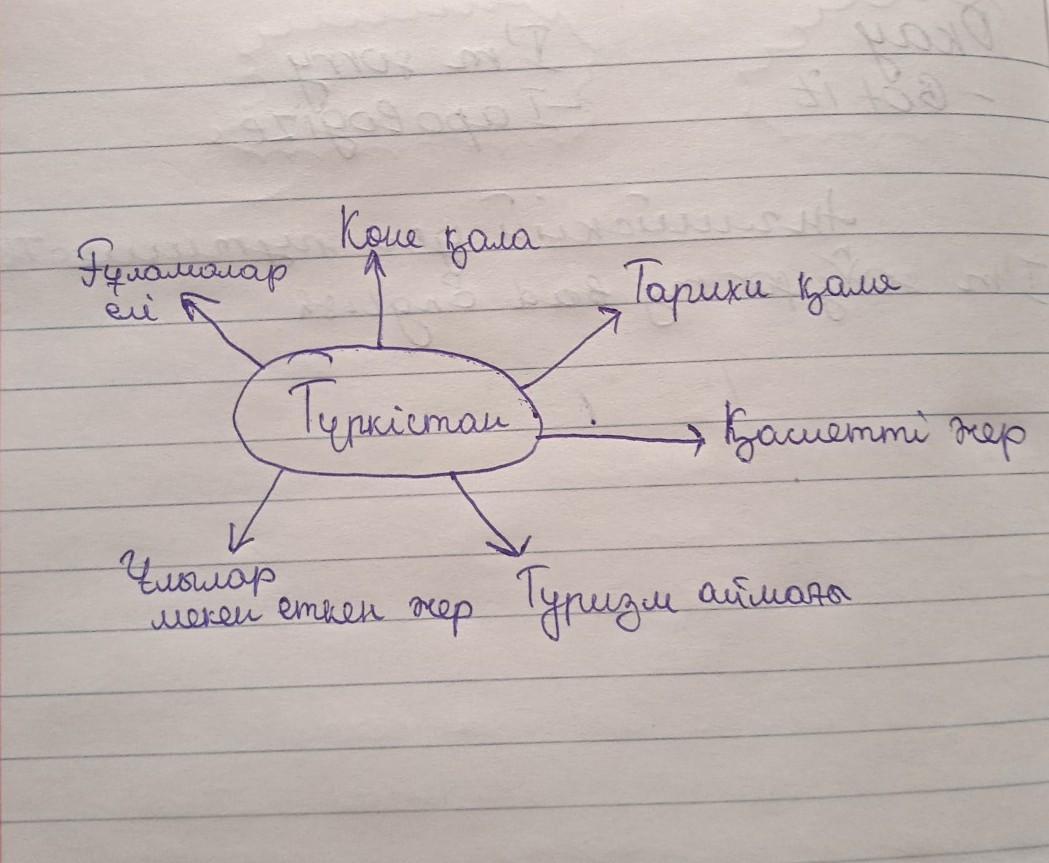 Көне қала
Ғұламалар
елі
Тарихи қала
Түркістан
Қасиетті жер
Ұлылар
мекен еткен жер
Туризм аймағы